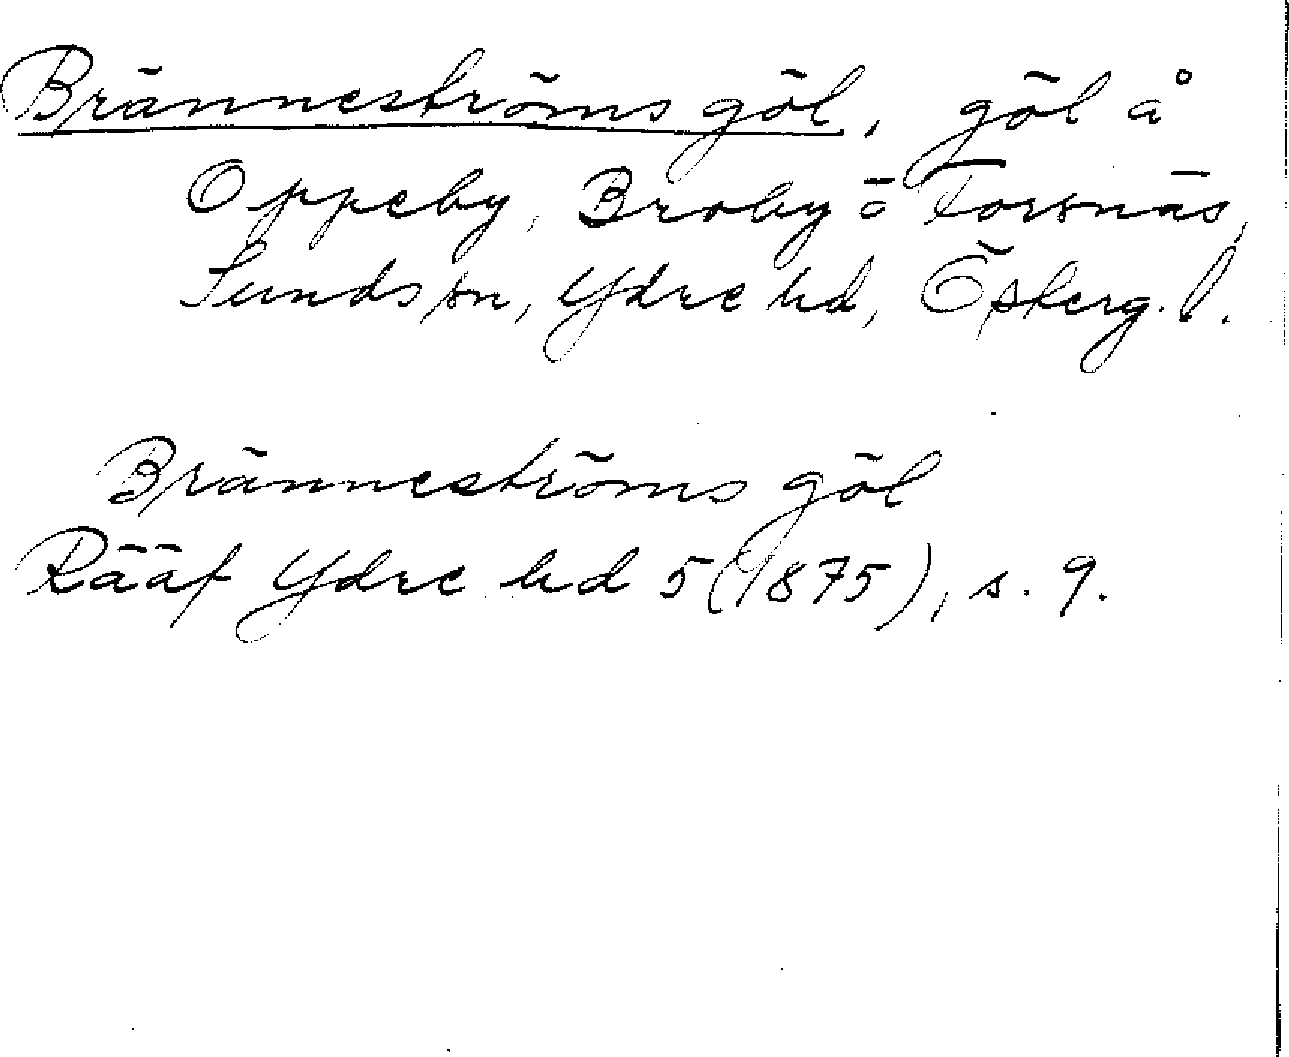 Bränneströms göl, göl å
Oppeby, Broby o Forsnäs,
Sunds sn, Ydre hd, Österg. l.
Bränneströms göl
Rääf Ydre hd 5 (1875), s. 9.